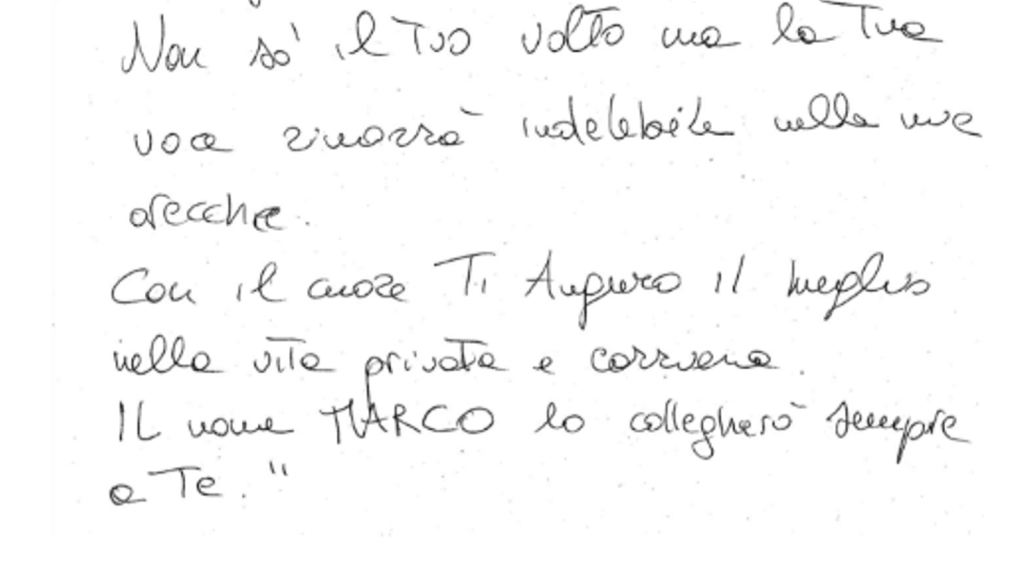 Non so' il Tuo volto ma la Tua
voce rimarrà indelebile nelle mie
orecchie.
Con il cuore Ti Auguro il meglio
nella vita privata e carriera.
IL nome MARCO lo collegherò sempre
a Te."